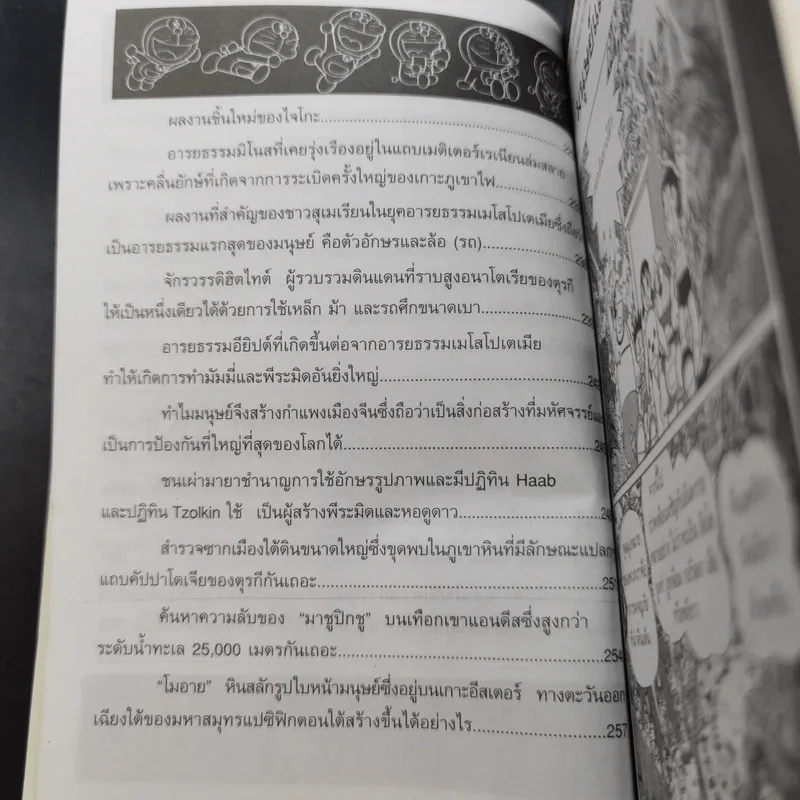 ผลงานชิ้นใหม่ของไจโกะ
อารยธรรมมิโนสที่เคยรุ่งเรืองอยู่ในแถบเมดิเตอร์เรเนียนล่มสลาย
เพราะคลื่นยักษ์ที่เกิดจากการระเบิดครั้งใหญ่ของเกาะภูเขาไฟ
ผลงานที่สำคัญของชาวสุเมเรียนในยุคอารยธรรมเมโสโปเตเมียซึ่งถือว่า
เป็นอารยธรรมแรกสุดของมนุษย์ คือตัวอักษรและล้อ (รถ)
จักรวรรดิฮิตไทต์ ผู้รวบรวมดินแดนที่ราบสูงอนาโตเรียของตุรกี
ให้เป็นหนึ่งเดียวได้ด้วยการใช้เหล็ก ม้า และรถศึกขนาดเบา
อารยธรรมอียิปต์ที่เกิดขึ้นต่อจากอารยธรรมเมโสโปเตเมีย
ทำให้เกิดการทำมัมมี่และพีระมิดอันยิ่งใหญ่
ทำไมมนุษย์จึงสร้างกำแพงเมืองจีนซึ่งถือว่าเป็นสิ่งก่อสร้างที่มหัศจรรย์และ
เป็นการป้องกันที่ใหญ่ที่สุดของโลกได้
ชนเผ่ามายาชำนาญการใช้อักษรรูปภาพและมีปฏิทิน Haab
และปฏิทิน Tzolkin ใช้ เป็นผู้สร้างพีระมิดและหอดูดาว
สำรวจซากเมืองใต้ดินขนาดใหญ่ซึ่งขุดพบในภูเขาหินที่มีลักษณะแปลกๆ
แถบคัปปาโดเจียของตุรกีกันเถอะ
ค้นหาความลับของ "มาชูปิกชู" บนเทือกเขาแอนดีสซึ่งสูงกว่า
ระดับน้ำทะเล 25,000 เมตรกันเถอะ 254
"โมอาย" หินสลักรูปใบหน้ามนุษย์ซึ่งอยู่บนเกาะอีสเตอร์ ทางตะวันออก
เฉียงใต้ของมหาสมุทรแปซิฟิกตอนใต้สร้างขึ้นได้อย่างไร 257